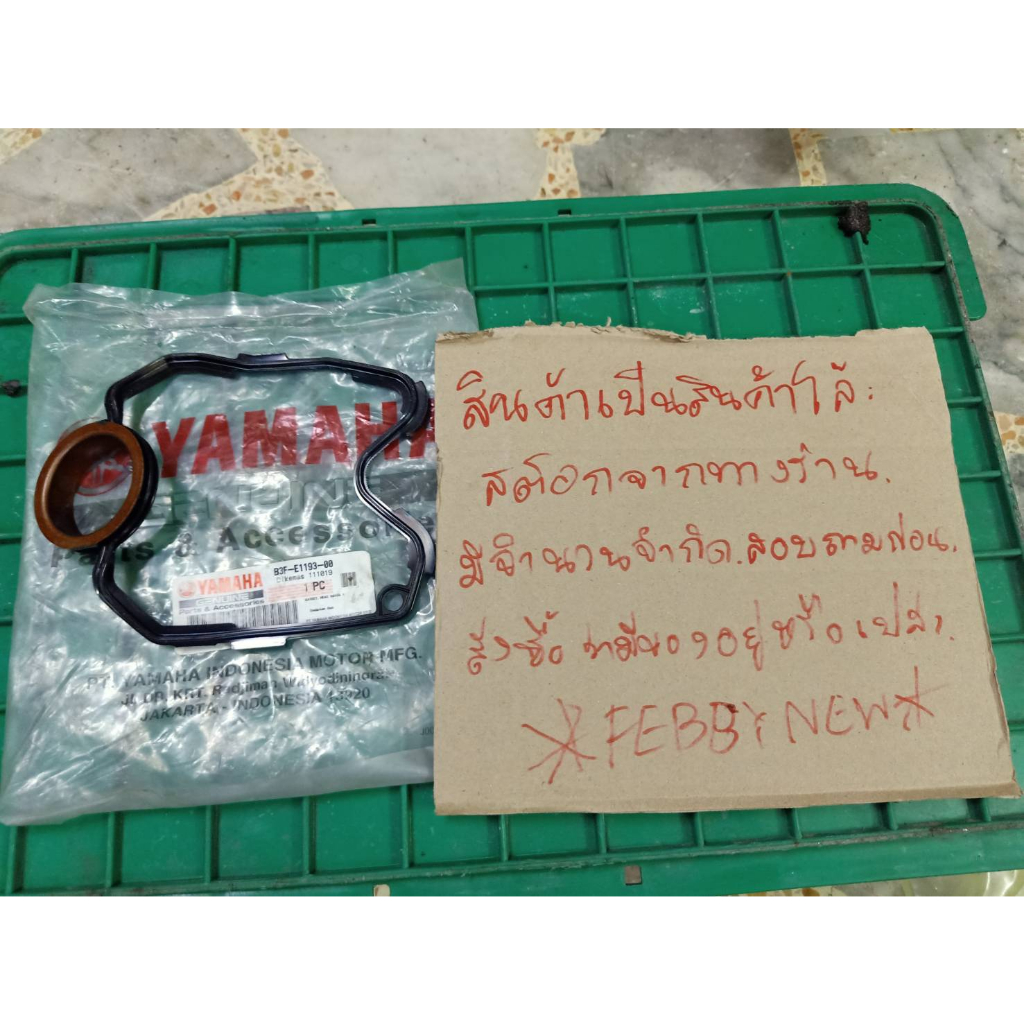 YAMAHA
GENUINE
Parts & Accessories
YAMAHA
GENUINE
Parts & Accessories
B3F-E1193-00
1 PC
PT. YAMAHA INDONESIA MOTOR MFG.
JL. DR. KRT. Radjiman Widyodiningrat
JAKARTA - INDONESIA 13920
สินค้าเป็นสินค้าโล๊ะ
สต๊อกจากทางร้าน.
มีจำนวนจำกัด.สอบถามก่อน.
สั่งซื้อ ว่ามีของอยู่หรือเปล่า.
FEBBY NEW